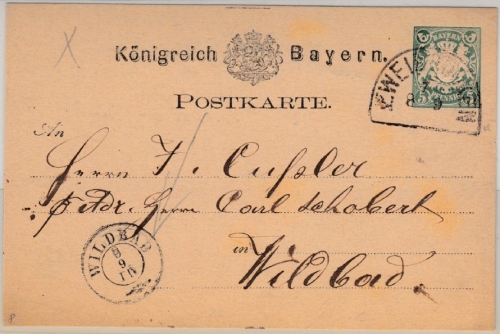 Königreich Bayern.
BAYERN
PFENNIG
POSTKARTE.
8 9
An
Herrn J. Cußler
p. Adr. Herrn Carl Schobert
in
Wildbad.
WILDBAD
8
9